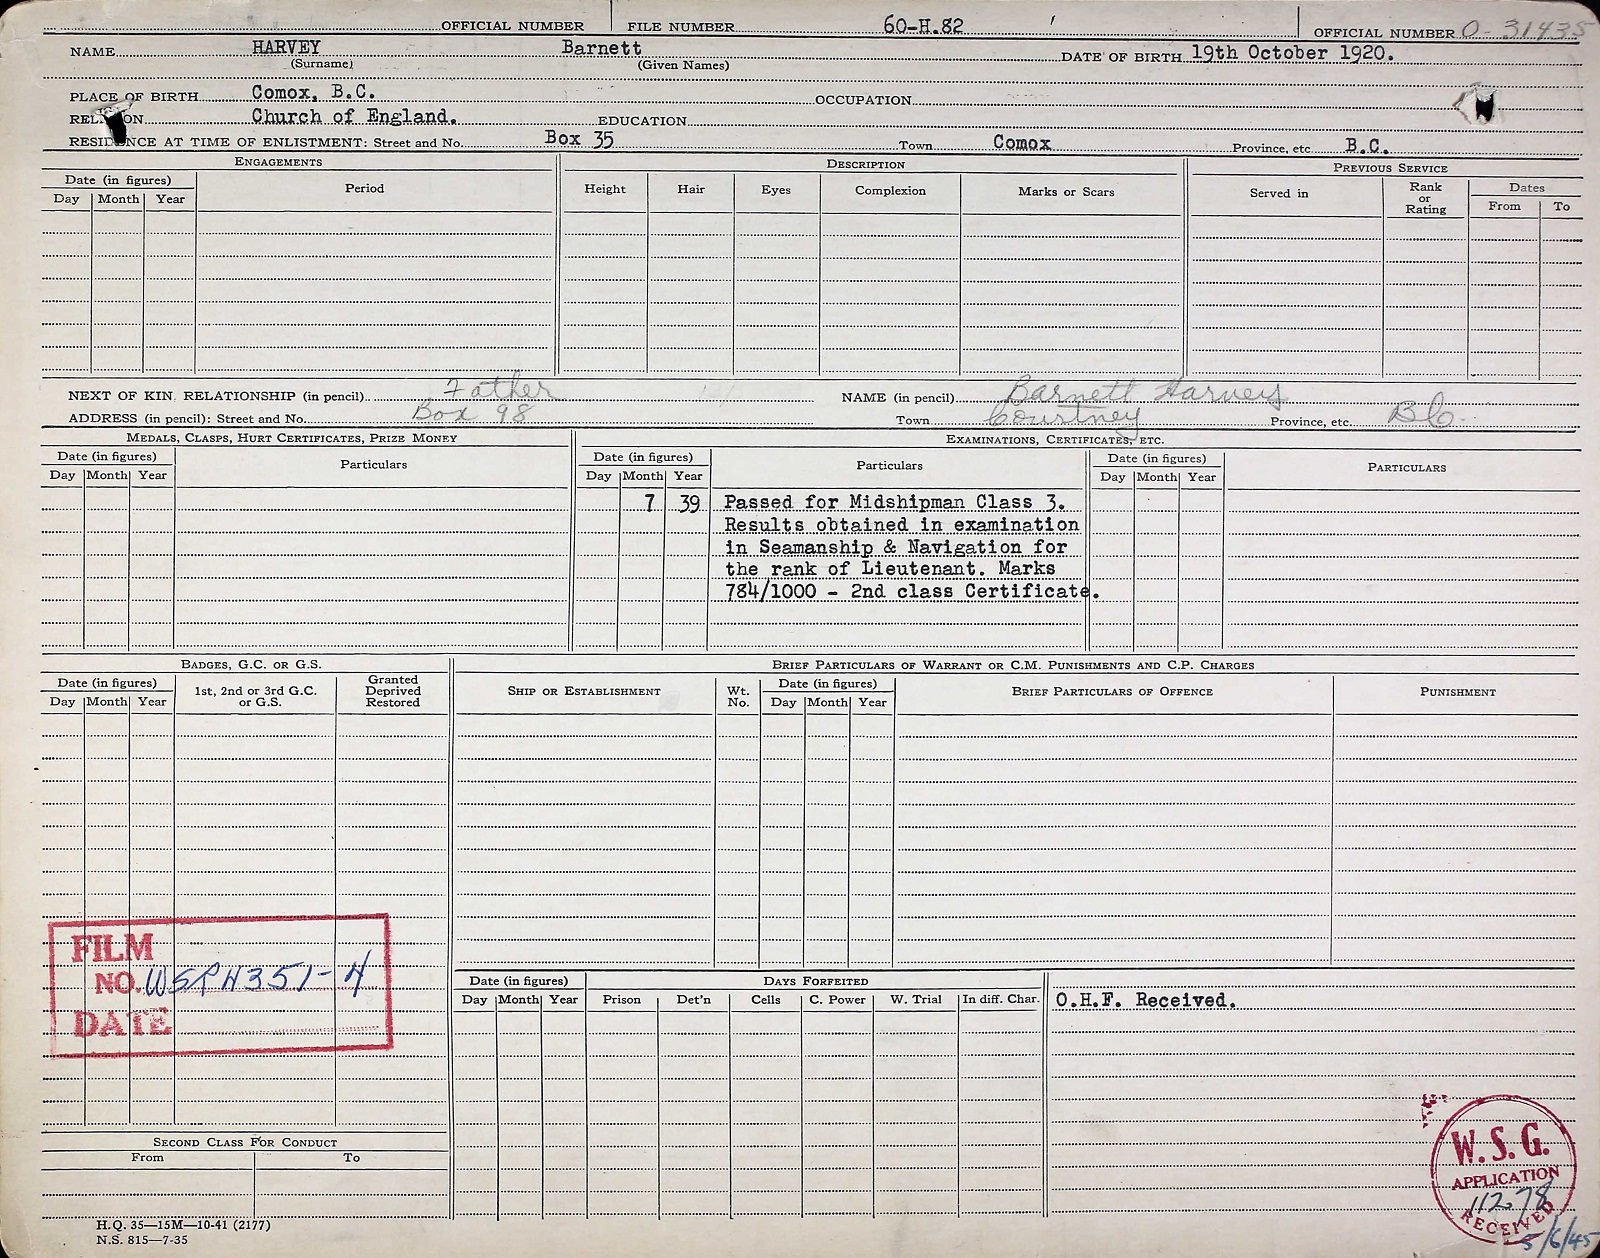 OFFICIAL NUMBER FILE NUMBER 60-H.82 OFFICIAL NUMBER O-31435
NAME HARVEY Barnett DATE OF BIRTH 19th October 1920.
(Surname) (Given Names)
PLACE OF BIRTH Comox, B.C. OCCUPATION
RELIGION Church of England. EDUCATION
RESIDENCE AT TIME OF ENLISTMENT: Street and No. Box 35 Town Comox Province, etc B.C.
ENGAGEMENTS DESCRIPTION PREVIOUS SERVICE
Date (in figures) Period Height Hair Eyes Complexion Marks or Scars Served in Rank or Rating Dates
Day Month Year From To
NEXT OF KIN. RELATIONSHIP (in pencil) Father NAME (in pencil) Barnett Harvey
ADDRESS (in pencil): Street and No. Box 98 Town Courtney Province, etc. BC.
MEDALS, CLASPS, HURT CERTIFICATES, PRIZE MONEY EXAMINATIONS, CERTIFICATES, ETC.
Date (in figures) Particulars Date (in figures) Particulars Date (in figures) PARTICULARS
Day Month Year Day Month Year Day Month Year
7 39 Passed for Midshipman Class 3.
Results obtained in examination
in Seamanship & Navigation for
the rank of Lieutenant. Marks
784/1000 - 2nd class Certificate.
BADGES, G.C. OR G.S. BRIEF PARTICULARS OF WARRANT OR C.M. PUNISHMENTS AND C.P. CHARGES
Date (in figures) 1st, 2nd or 3rd G.C. or G.S. Granted Deprived Restored SHIP OR ESTABLISHMENT Wt. No. Date (in figures) BRIEF PARTICULARS OF OFFENCE PUNISHMENT
Day Month Year Day Month Year
FILM
NO. WSRH351-4
DATE
Date (in figures) DAYS FORFEITED
Day Month Year Prison Det'n Cells C. Power W. Trial In diff. Char.
O.H.F. Received.
SECOND CLASS FOR CONDUCT
From To
W.S.G.
APPLICATION
11278
RECEIVED
5/6/45
H.Q. 35—15M—10-41 (2177)
N.S. 815—7-35